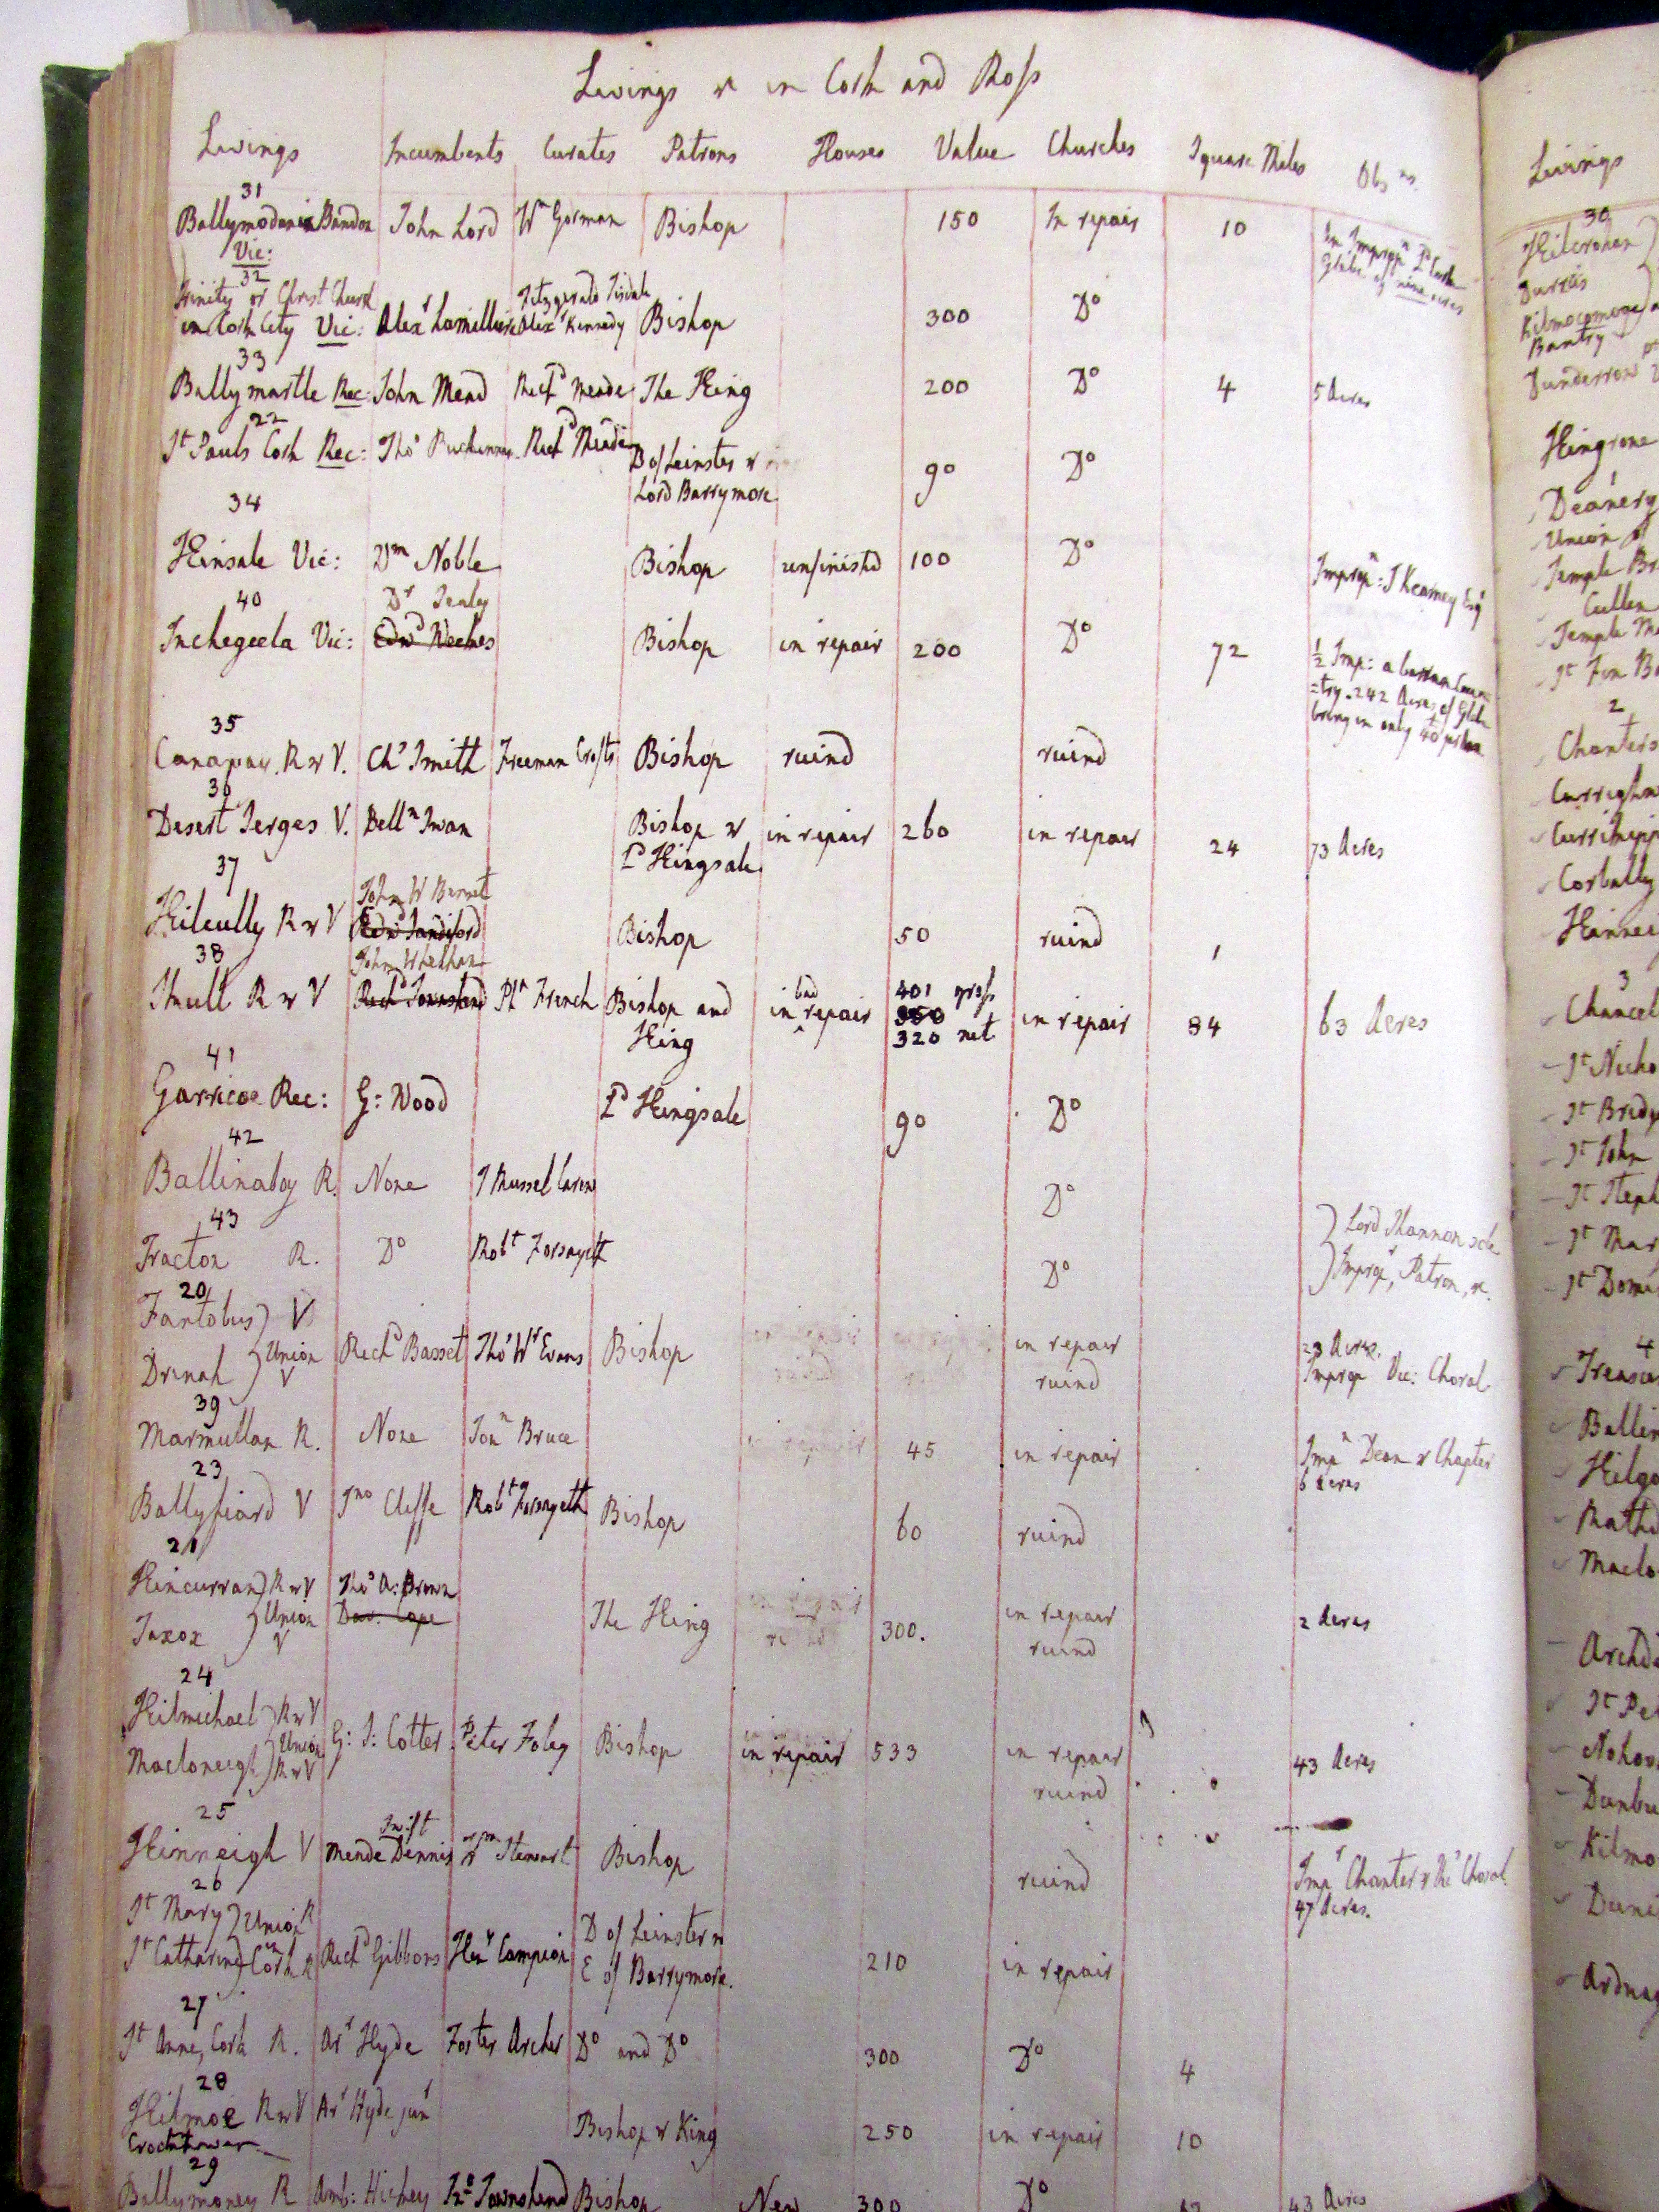 Livings &c in Cork and Ross
Livings Incumbents Curates Patrons Houses Value Churches Square Miles Obsns.
31
Ballymodan in Bandon John Lord Wm Gorman Bishop 150 In repair 10
Vic:
Glebe of nine acres
32
Trinity or Christ Church Fitzgerald Tisdale
in Cork City Vic: Alexr Lamilliere Alexr Kennedy Bishop 300 Do
33
Ballymartle Rec: John Mead Richd Meade The King 200 Do 4 5 Acres
22
St Pauls Cork Rec: Thos Richd Meade D of Leinster & 90 Do
Lord Barrymore
34
Kinsale Vic: Wm Noble Bishop unfinishd 100 Do Impropn: J Kearney Esqr
40 Dr Sealy
Inchegeela Vic: Edwd Weekes Bishop in repair 200 Do 72 ½ Imp: a barren Coun
=try. 242 Acres of Glebe
bring in only 40
35
Canaway. R & V. Chs Smith Freeman Crofts Bishop ruind ruind
36
Desert Serges V. Belln Swan Bishop & in repair 260 in repair 24 73 Acres
Ld Kingsale
37 John W Barret
Kilcully R & V Edwd Sandiford Bishop 50 ruind 1
38 John Whelhan
Skull R & V Richd Townshend French Bishop and in bad repair 401 gross in repair 84 63 Acres
King 350
320 net
41
Garricoe Rec: G: Wood Ld Kingsale 90 Do
42
Ballinaboy R. None Do
43
Tracton R. Do Robt Forsayeth Do Lord Shannon sole
Impropr, Patron, &c.
20
Fanlobus V
Union Richd Basset Thos Wr Evans Bishop in repair 23 Acres.
Drinah V ruind Impropr Vic: Choral
39
Marmullan R. None Jonn Bruce 45 in repair Impn Dean & Chapter
6 acres
23
Ballyfeard V Jno Cliffe Robt Forsayeth Bishop 60 ruind
21
Kincurran R & V Thos A: Brown in repair
Union Dav. Cope The King 300. 2 Acres
Taxox V ruind
24
Kilmichael R & V
Union G: S: Cotter Peter Foley Bishop in repair 533 in repair 43 Acres
Macloneigh R & V ruind
25 Swift
Kinneigh V Meade Dennis Wm Stewart Bishop ruind Impr Chanter & Vic Choral
47 Acres.
26
St Mary Union R D of Leinster &
St Catharine in Cork R Richd Gibbons Heny Campion E of Barrymore. 210 in repair
27
St Anne, Cork R. Ar Hyde Foster Archer Do and Do 300 Do 4
28
Kilmoe R & V Ar Hyde junr Bishop & King 250 in repair 10
Crookhaven
29
Ballymoney R Amb: Hickey Townshend Bishop New 300 Do 43 Acres
Livings
30
Kilcrohan
Durrus
Kilmocomoge
Bantry
Dunderrow
Kingrone
Deanery
Union of
Temple Br
Cullen
St Fin Ba
2
Chanters
Corbally
3
Chancel
St Nicho
St Bridg
St John
St Steph
St Mar
St Domi
4
Treasur
Ballin
Kilgo
Rathd
Maclo
Archd
St Pe
Nohov
Dunbu
Kilmo
Ardnag